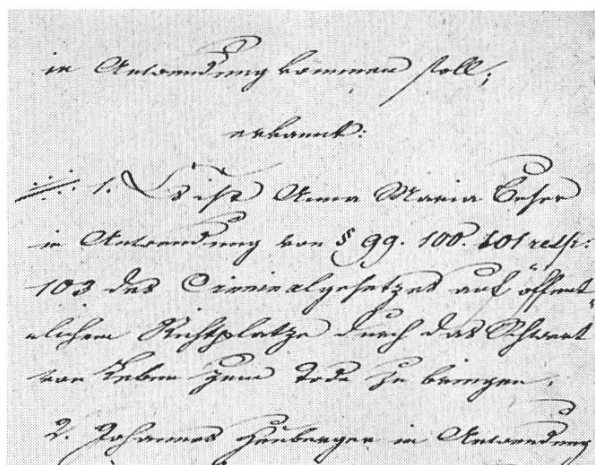 in Anwendung kommen soll;
erkannt:
1. Es ist Anna Maria
in Anwendung von § 99. 100. 101 resp:
103 des Criminalgesetzes auf öffent-
lichem Richtplatze durch das Schwert
vom Leben zum Tode zu bringen.
2. Johannes in Anwendung